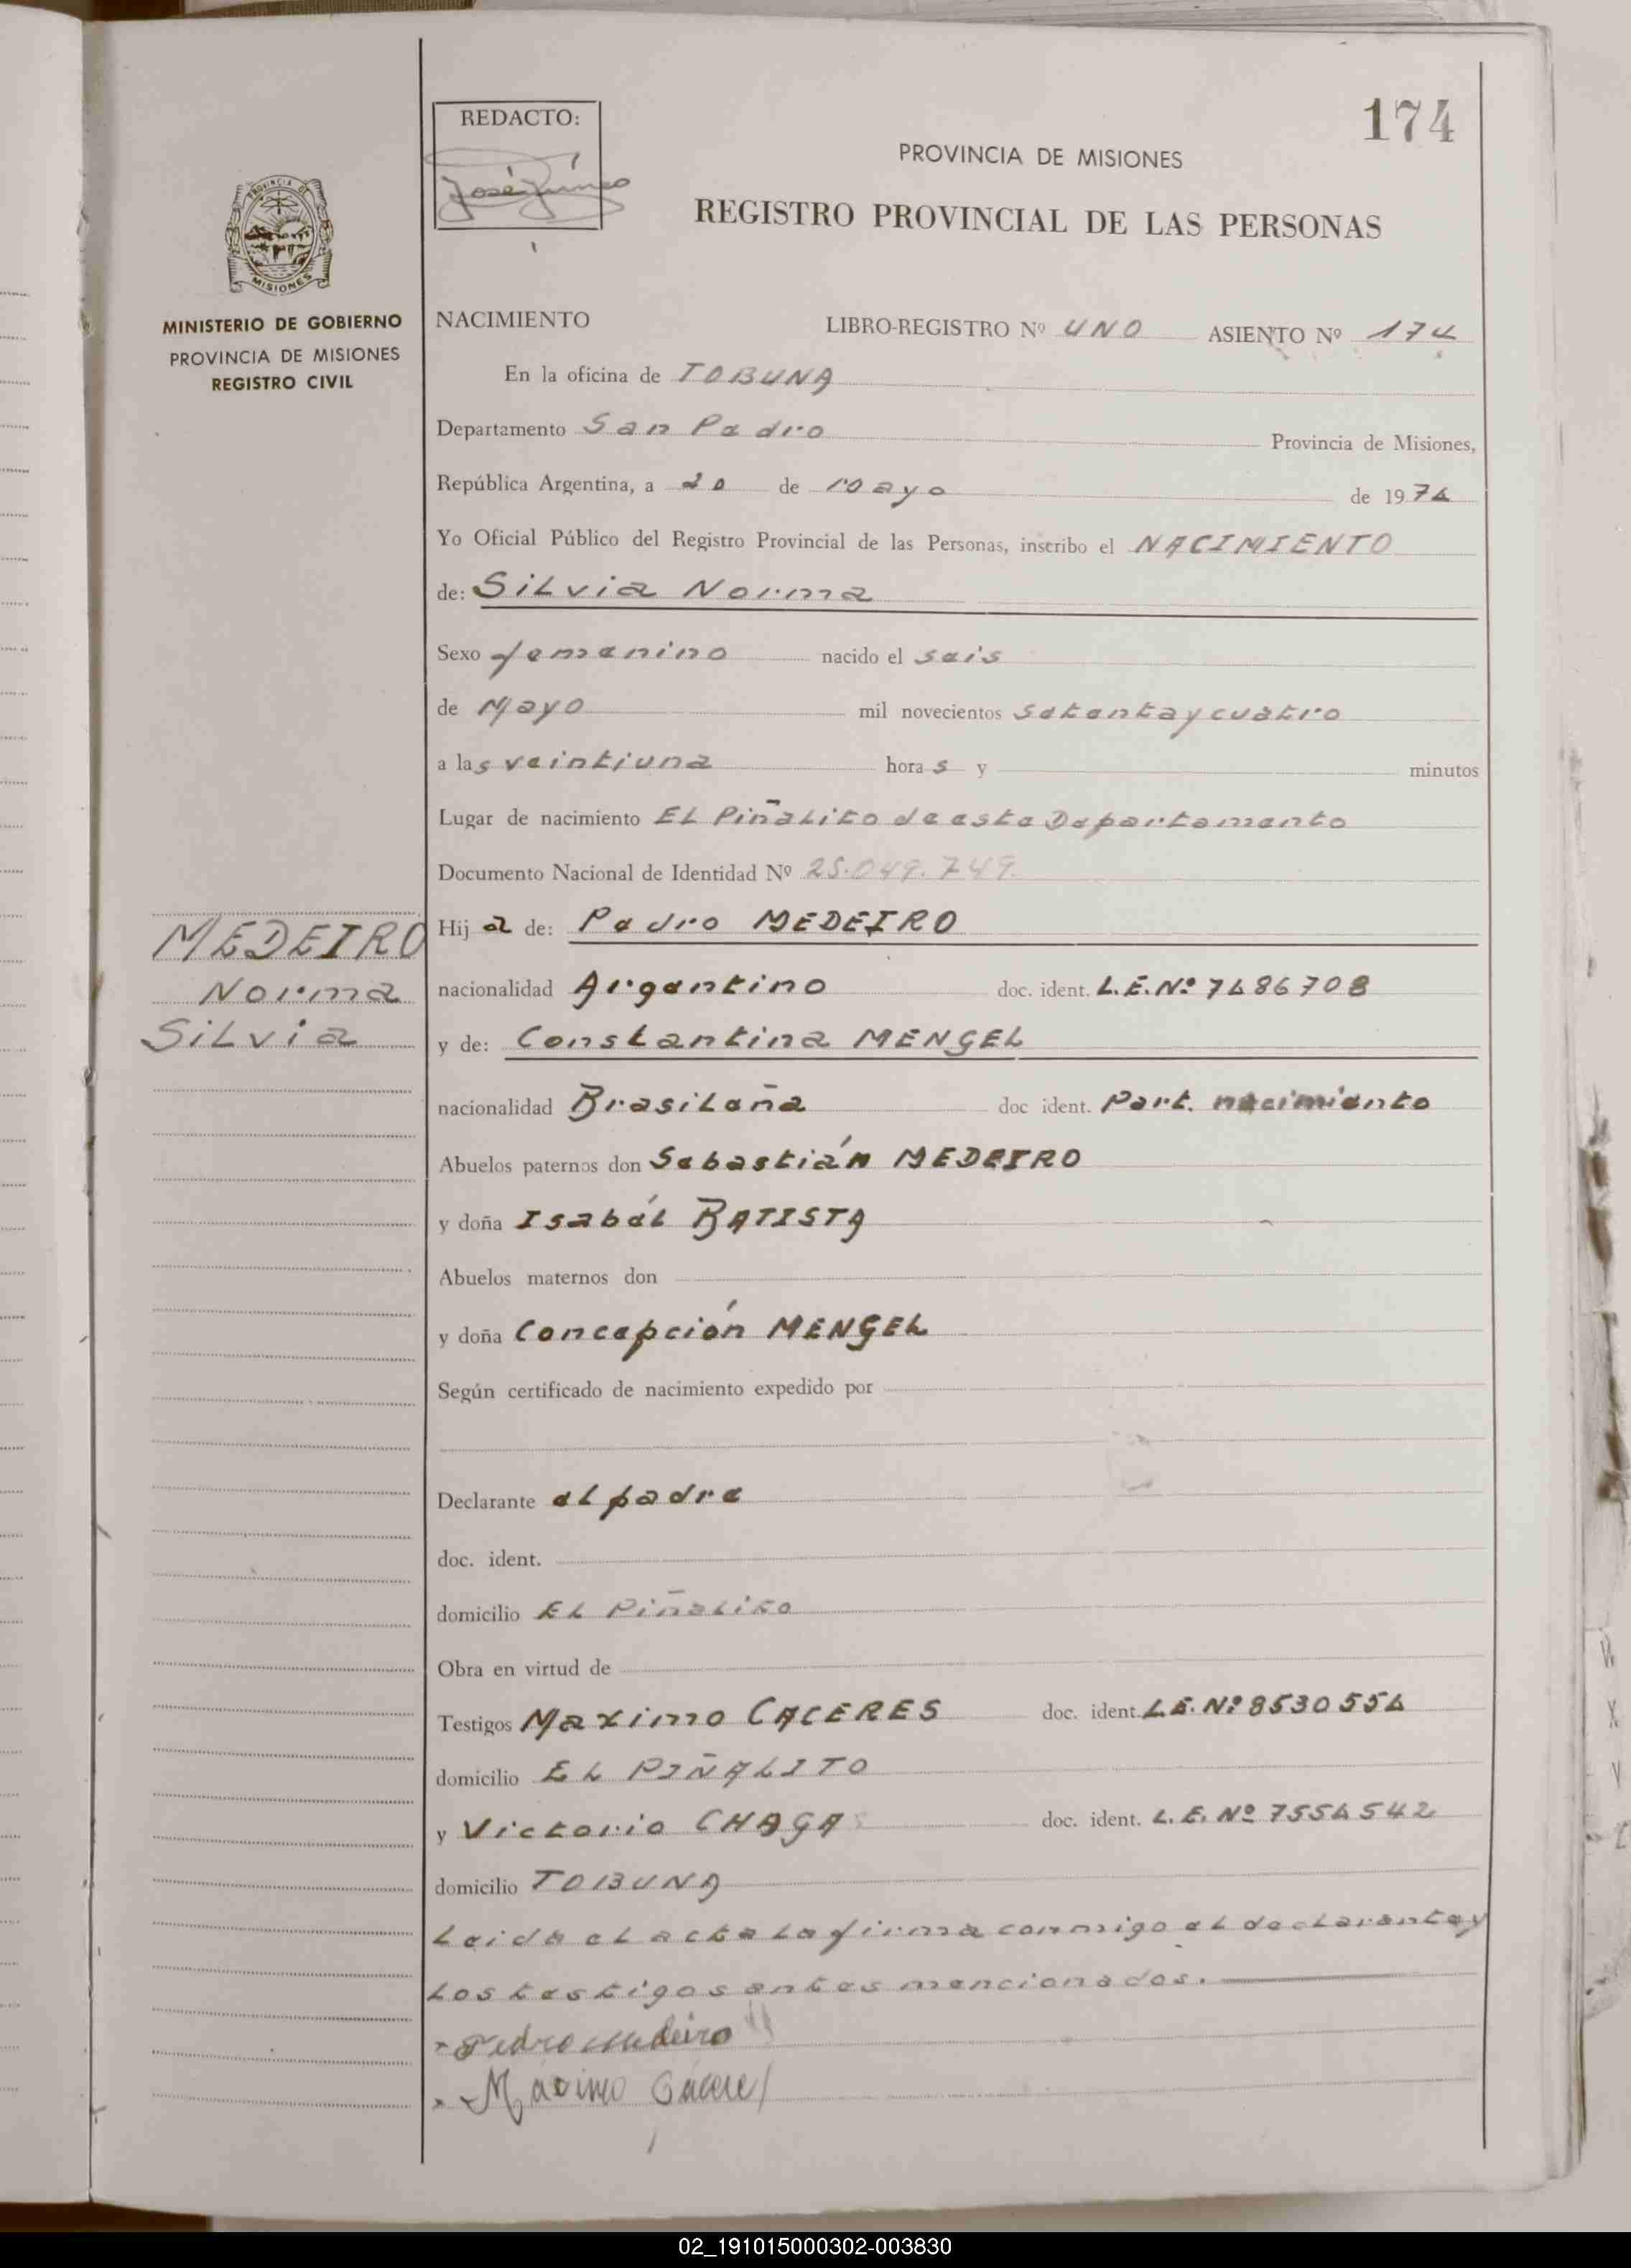 174
REDACTO:
PROVINCIA DE MISIONES
REGISTRO PROVINCIAL DE LAS PERSONAS
PROVINCIA DE
MISIONES
MINISTERIO DE GOBIERNO
PROVINCIA DE MISIONES
REGISTRO CIVIL
NACIMIENTO LIBRO-REGISTRO Nº UNO ASIENTO Nº 174
En la oficina de TOBUNA
Departamento San Pedro Provincia de Misiones,
República Argentina, a 20 de mayo de 1974
Yo Oficial Público del Registro Provincial de las Personas, inscribo el NACIMIENTO
de: Silvia Norma
Sexo femenino nacido el seis
de Mayo mil novecientos setenta y cuatro
a las veintiuna horas y minutos
Lugar de nacimiento El Piñalito de este Departamento
Documento Nacional de Identidad Nº 25.049.749.
Hija de: Pedro MEDEIRO
MEDEIRO
Norma
Silvia
nacionalidad Argentino doc. ident. L.E.Nº 7486708
y de: Constantina MENGEL
nacionalidad Brasileña doc ident. Part. nacimiento
Abuelos paternos don Sebastián MEDEIRO
y doña Isabél BATISTA
Abuelos maternos don
y doña Concepción MENGEL
Según certificado de nacimiento expedido por
Declarante el padre
doc. ident.
domicilio El Piñalito
Obra en virtud de
Testigos Maximo CACERES doc. ident. L.E. Nº 8530554
domicilio EL PIÑALITO
y Victorio CHAGA doc. ident. L.E. Nº 7554542
domicilio TOBUNA
Leida el acta la firma conmigo el declarante y
los testigos antes mencionados.
Pedro Medeiro
Máximo Cacere
02_191015000302-003830